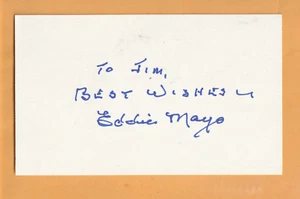 To Jim,
BEST WISHES
Eddie Mayo